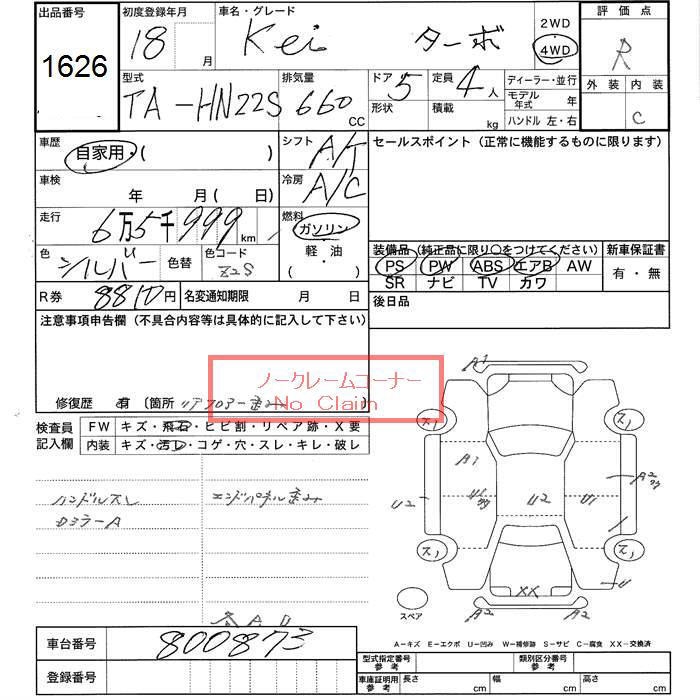 出品番号 初度登録年月 車名・グレード 2WD 評価点
1626 18 月 Kei ターボ 4WD R
型式 排気量 ドア 5 定員 4 人 ディーラー・並行 外装 内装
TA-HN22S 660 CC 形状 積載 kg モデル年式 年 C
ハンドル 左・右
車歴 自家用・( ) シフト A/T セールスポイント (正常に機能するものに限ります)
車検 年 月 ( 日) 冷房 A/C
走行 6万5千999 km 燃料 ガソリン
色 シルバー 色替 色コード Z2S 軽・油 ( )
装備品 (純正品に限り○をつけてください) 新車保証書
PS PW ABS エアB AW 有・無
SR ナビ TV カワ
R券 8810円 名変通知期限 月 日 後日品
注意事項申告欄 (不具合内容等は具体的に記入して下さい)
ノークレームコーナー
No Claim
修復歴 有 〔箇所 リアフロアー歪み
検査員記入欄 FW キズ・飛石・ヒビ割・リペア跡・X要
内装 キズ・汚レ・コゲ・穴・スレ・キレ・破レ
ハンドルスレ エンドパネル歪み
A1
ス1 ス1
A1 A2
U2 U2 U1
ス1 ス1
XX U
スペア A2 A2
A-キズ E-エクボ U-凹み W-補修跡 S-サビ C-腐食 XX-交換済
車台番号 800873
登録番号
型式指定番号 参考 類別区分番号 参考
車庫証明用 参考 長さ cm 幅 cm 高さ cm